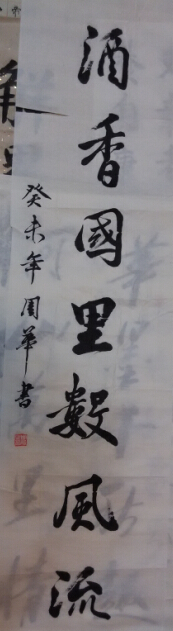 酒香國里數風流
癸未年周華書